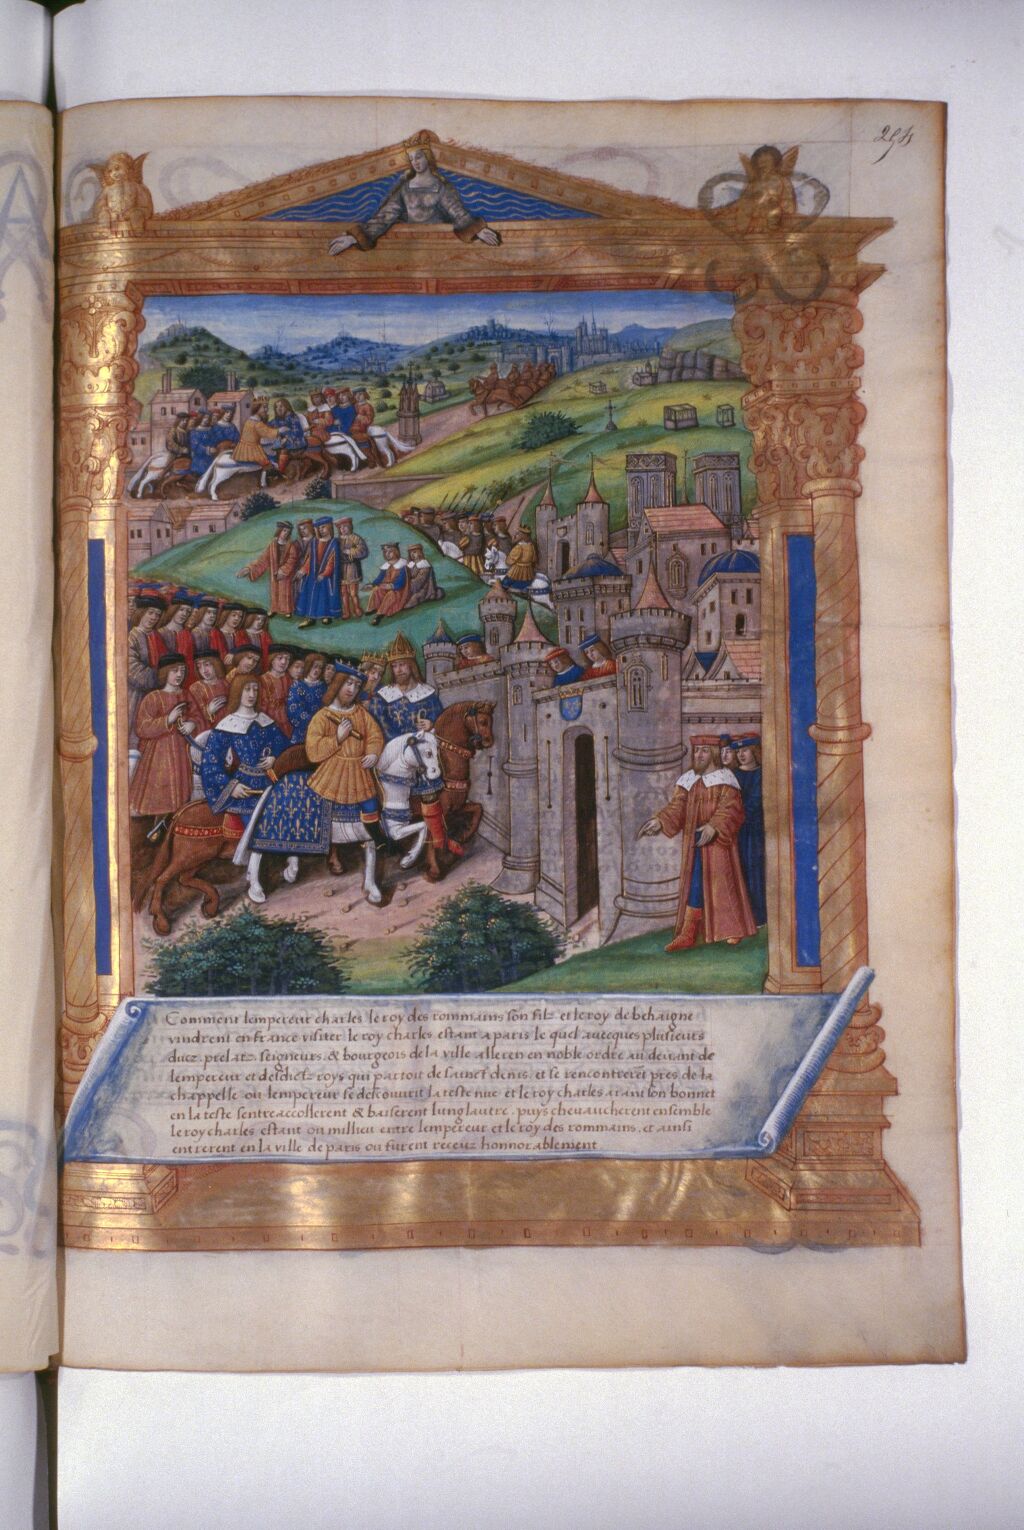 294
Comment lempereur charles le roy des rommains son filz et le roy de behaigne
vindrent en france visiter le roy charles estant a paris le quel avecques plusieurs
ducz prelatz seigneurs & bourgeois de la ville alleren en noble ordre au devant de
lempereur et desdictz roys qui partoit de sainct denis, et se rencontrerent pres de la
chappelle ou lempereur se descouvrit la teste nue et le roy charles aiant son bonnet
en la teste sentreaccollerent & baiserent lung lautre. puys chevaucherent ensemble
le roy charles estant ou millieu entre lempereur et le roy des rommains. et ainsi
entrerent en la ville de paris ou furent receuz honnorablement